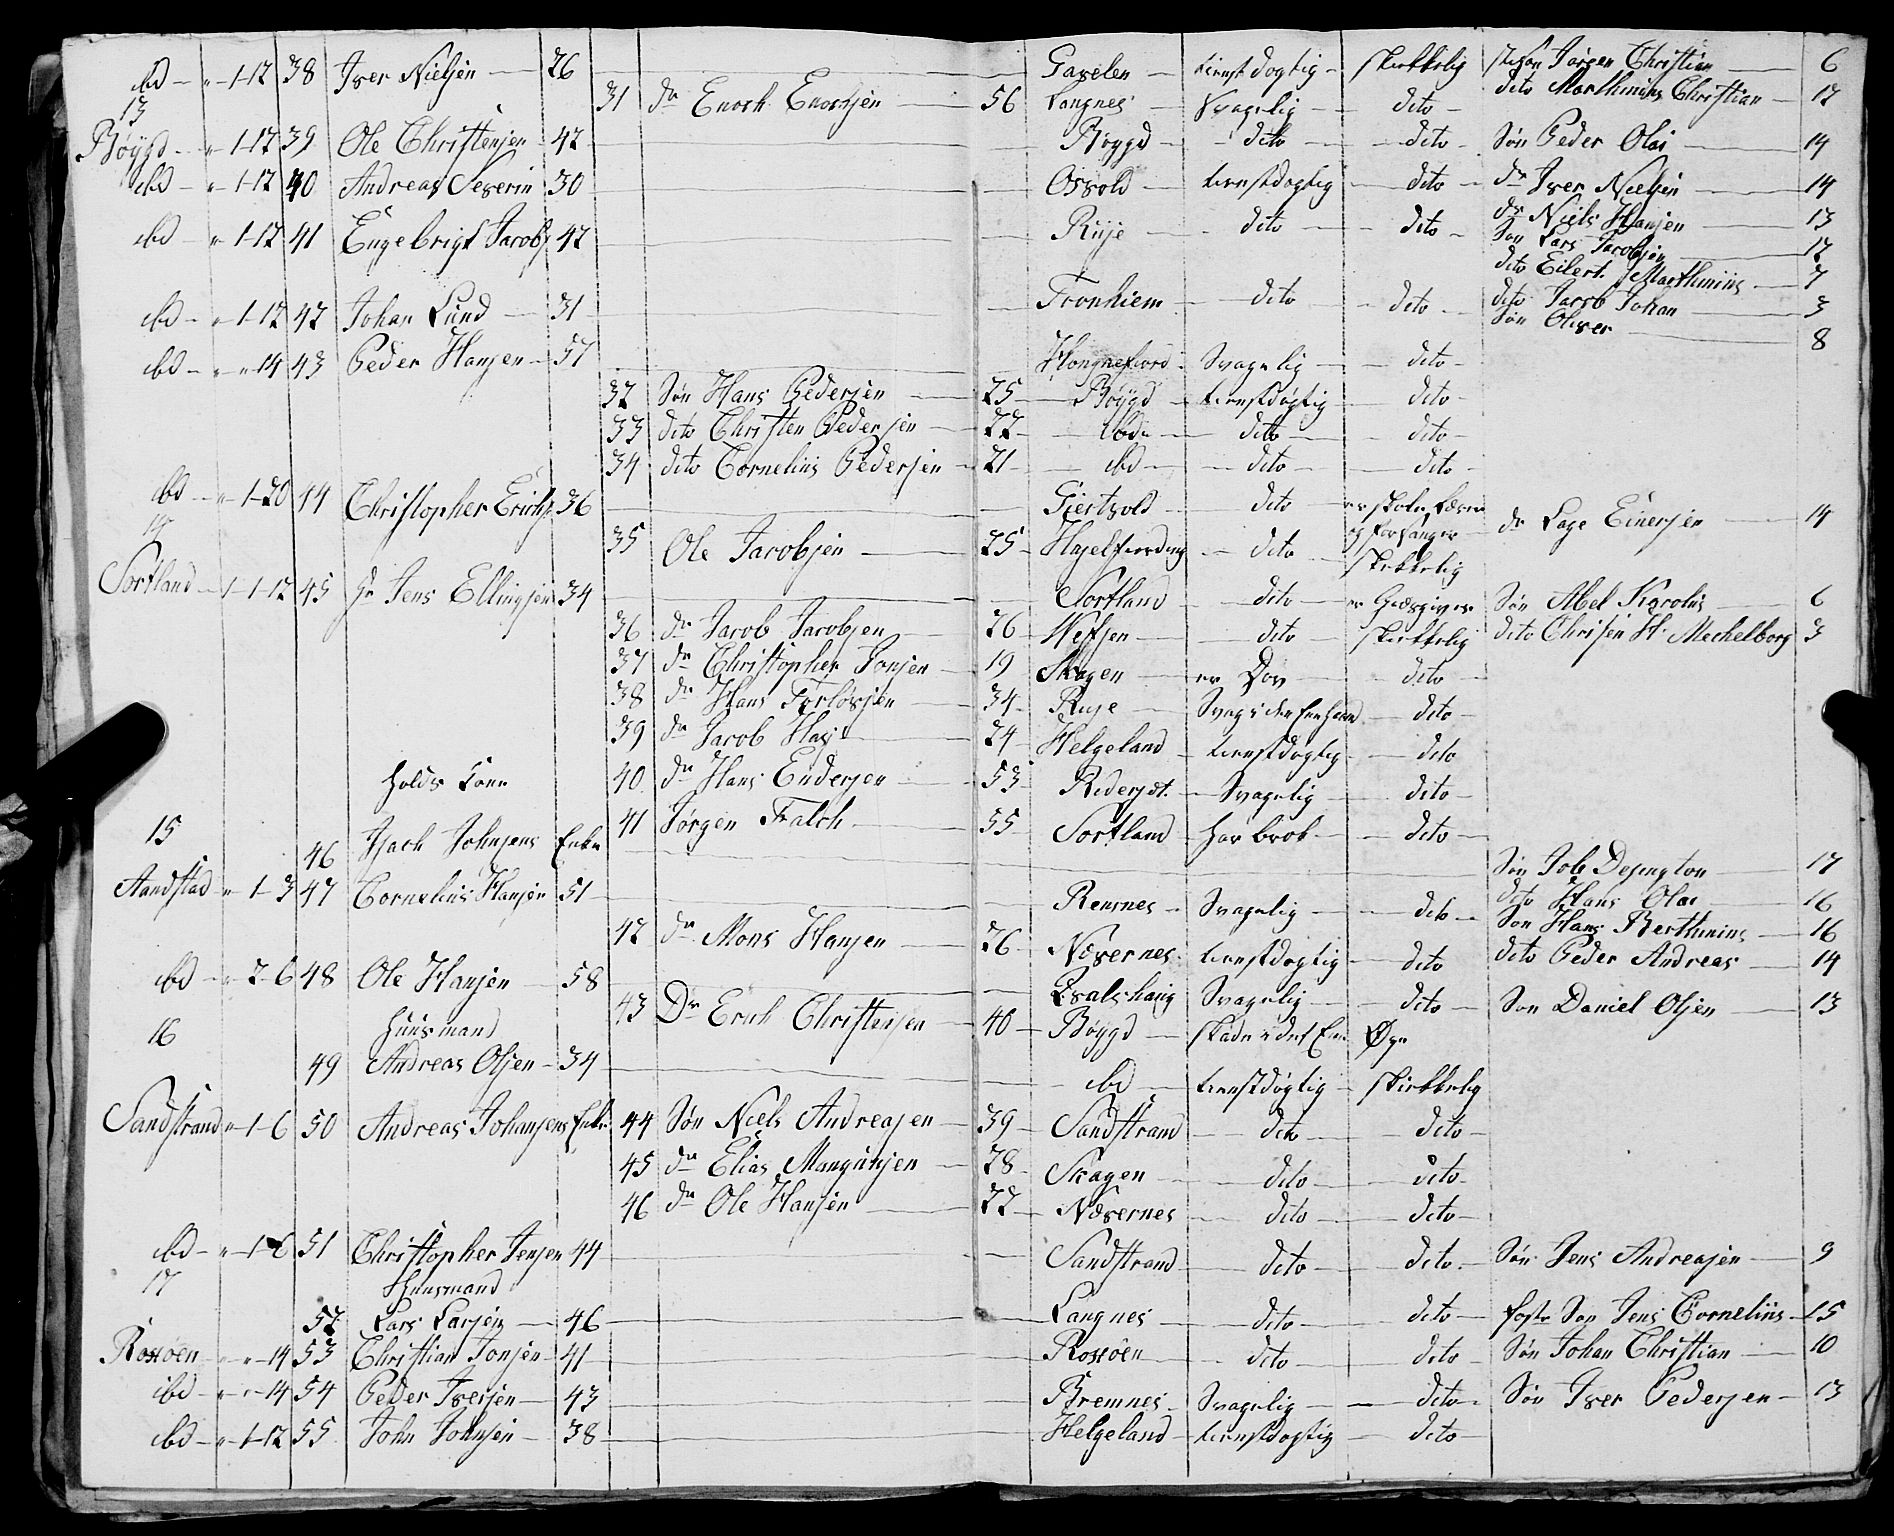 ibd - " - 1-12 38 Iver Nielsen 26 Gavelen tienstdygtig skikkelig stifsøn Jørgen Christian 6
31 dr Enoch Enochsen 56 Langnes Svagelig dito dito Marthinus Christian 12
13
Bøygd - " 1-12 39 Ole Christensen 42 Bøygd dito dito Søn Peder Olai 14
ibd - " 1-12 40 Andreas Severin 30 Osvold tienstdygtig dito dr Iver Nielsen 14
dr Niels Hansen 13
ibd - " 1-12 41 Engebrigt Jacobs 42 Ruje dito dito Søn Lars Jacobsen 12
dito Eilert Marthinus 7
dito Jacob Johan 3
ibd - " 1-12 42 Johan Lund 31 Tronhiem dito dito Søn Oliver 8
ibd - " " 14 43 Peder Hansen 57 Hognefiord Svagelig dito
32 Søn Hans Pedersen 25 Bøygd tienstdygtig dito
33 dito Christen Pedersen 22 ibd dito dito
34 dito Cornelius Pedersen 21 ibd dito dito
ibd - " 1-20 44 Christopher Erichs 36 Giertvold dito er skole Lærer og forsanger dr Lage Einersen 14
14
35 Ole Jacobsen 25 Hajelfiording dito skikkelig
Sortland - 1-1-12 45 Hr Jens Ellingsen 34 Sortland dito er Giæsgiver Søn Abel Karolus 6
36 dr Jacob Jacobsen 26 Wefsen dito skikkelig dito Chrisen H. Mechelborg 3
37 dr Christopher Jonsen 19 Skagen er Døv dito
38 dr Hans Torløvsen 34 Ruje Svag i den Eene Haand dito
39 dr Jacob Hass 24 Helgeland tienstdygtig dito
40 dr Hans Endersen 53 Redersdt. Svagelig dito
holds Kone
41 Jørgen Falch 55 Sortland har brok dito
15
46 Isach Johnsens Enke Søn Job Desington 17
dito Hans Olai 16
Aandstad " 1-3 47 Cornelius Hansen 51 Rensnes Svagelig dito Søn Hans Berthinius 16
42 dr Mons Hansen 26 Næsernes tienstdygtig dito dito Peder Andreas 14
ibd - " 2-6 48 Ole Hansen 58 Qvalshaug Svagelig dito Søn Daniel Olsen 13
43 Dr Erich Christensen 40 Bøygd skade i det Ene Øye
16
Huusmand
49 Andreas Olsen 34 ibd tienstdygtig skikkelig
Sandstrand " 1-6 50 Andreas Johansens Enke 44 Søn Niels Andreasen 39 Sandstrand dito dito
45 dr Elias Mangnusen 28 Skagen dito dito
46 dr Ole Hansen 22 Næsernes dito dito
ibd - " 1-6 51 Christopher Jensen 44 Sandstrand dito dito Søn Jens Andreasen 9
17
Huusmand
52 Lars Larsen 46 Langnes dito dito foster Søn Jens Cornelius 15
Rossøen - " " 14 53 Christian Jonsen 41 Rossøen dito dito Søn Johan Christian 10
ibd - " " 14 54 Peder Iversen 43 Bremnes Svagelig dito Søn Iver Pedersen 13
ibd - " 1-12 55 John Johnsen 38 Helgeland tienstdygtig dito